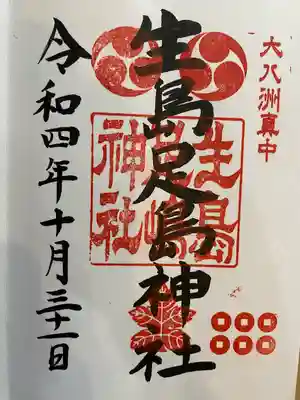 大八洲真中
生島足島神社
生島足嶋神社
令和四年十月三十一日